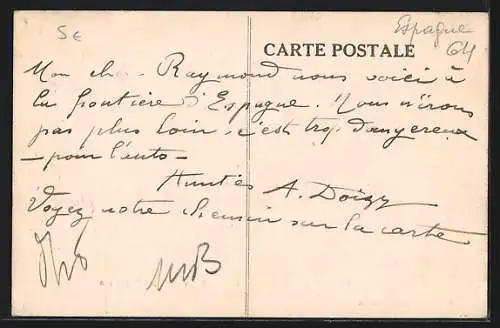 5€
Espagne
64
CARTE POSTALE
Mon cher Raymond nous voici à
la frontière d'Espagne. Nous n'irons
pas plus loin, c'est trop dangereux
- pour l'auto -
A. Doizy
Voyez notre chemin sur la carte